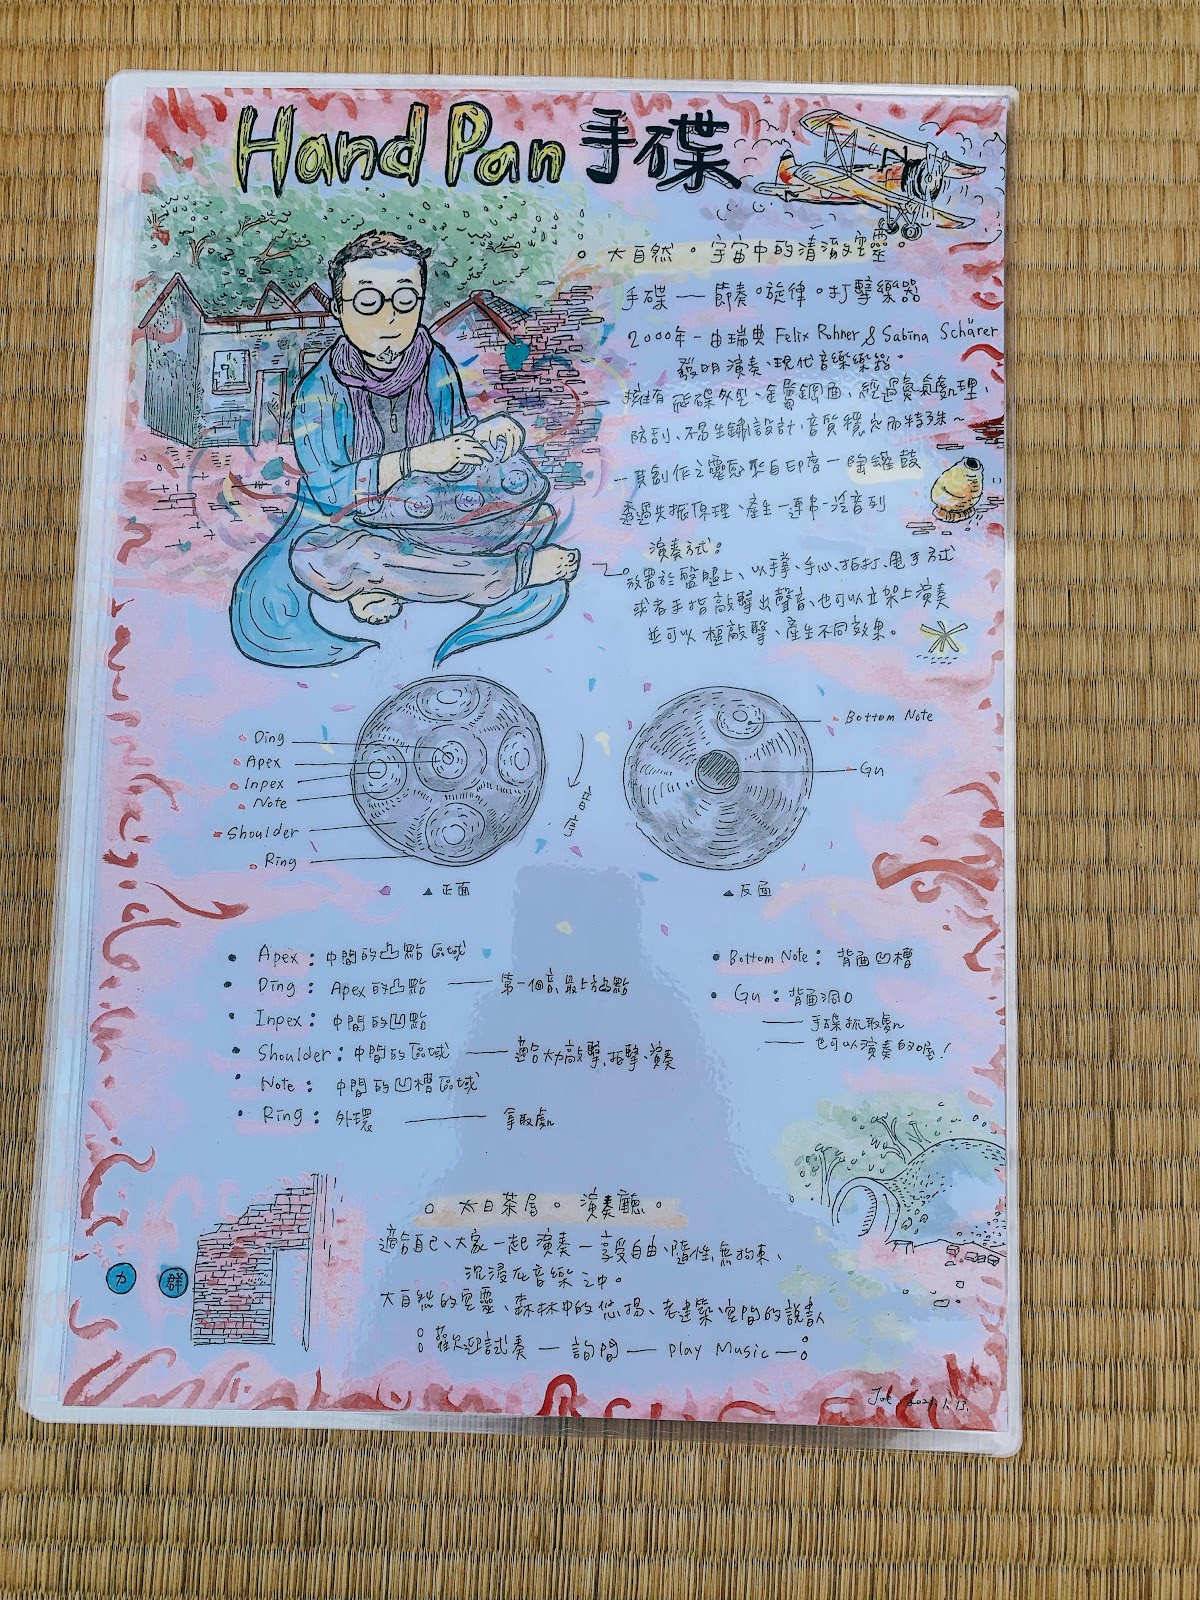 Hand Pan 手碟
大自然。宇宙中的清澈空靈。
手碟 — 節奏。旋律。打擊樂器
2000年 - 由瑞典 Felix Rohner & Sabina Schärer
發明演奏、現代音樂樂器。
擁有飛碟外型、金屬鋼面、經過氮氣處理、
防刮、不易生鏽設計、音質穩定而特殊~
— 其創作之靈感來自印度 — 陶罐鼓
透過共振原理、產生一連串 - 泛音列
演奏方式。
放置於盤腿上、以手掌、手心、拍打、甩手方式
或者手指敲擊出聲音、也可以立架上演奏
並可以 槌敲擊、產生不同效果。
Ding
Apex
Inpex
Note
Shoulder
Ring
音序
Bottom Note
Gu
▲正面
▲反面
• Apex : 中間的凸點區域
• Ding : Apex 的凸點 — 第一個音、最上方凸點
• Inpex : 中間的凹點
• Shoulder : 中間的區域 — 適合大力敲擊、拍擊、演奏
• Note : 中間的凹槽區域
• Ring : 外環 — 拿取處
• Bottom Note : 背面凹槽
• Gu : 背面洞口
— 手碟抓取處
— 也可以演奏的喔!
太白茶居。演奏廳。
適合自己、大家一起演奏 — 享受自由、隨性、無拘束、
沉浸在音樂之中。
大自然的空靈、森林中的悠揚、老建築、空間的說書人
歡迎試奏 — 詢問 — play Music —
力 群
Joe. 2021.1.13.